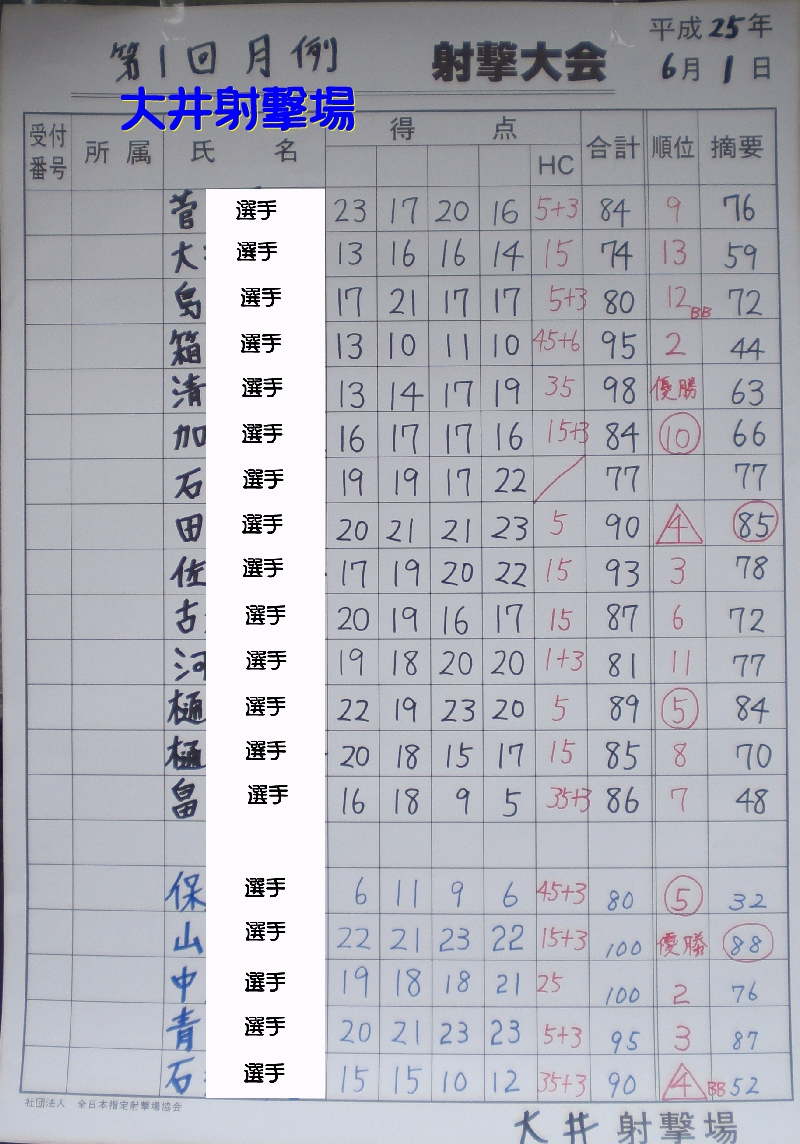 第1回月例 射撃大会 平成25年
6月1日
大井射撃場
受付番号 所属 氏名 得点 HC 合計 順位 摘要
菅 選手 23 17 20 16 5+3 84 9 76
大 選手 13 16 16 14 15 74 13 59
島 選手 17 21 17 17 5+3 80 12 BB 72
箱 選手 13 10 11 10 45+6 95 2 44
清 選手 13 14 17 19 35 98 優勝 63
加 選手 16 17 17 16 15+3 84 10 66
石 選手 19 19 17 22 / 77 77
田 選手 20 21 21 23 5 90 4 85
佐 選手 17 19 20 22 15 93 3 78
古 選手 20 19 16 17 15 87 6 72
河 選手 19 18 20 20 1+3 81 11 77
樋 選手 22 19 23 20 5 89 5 84
樋 選手 20 18 15 17 15 85 8 70
畠 選手 16 18 9 5 35+3 86 7 48
保 選手 6 11 9 6 45+3 80 5 32
山 選手 22 21 23 22 15+3 100 優勝 88
中 選手 19 18 18 21 25 100 2 76
青 選手 20 21 23 23 5+3 95 3 87
石 選手 15 15 10 12 35+3 90 4 BB 52
社団法人 全日本指定射撃場協会
大井射撃場